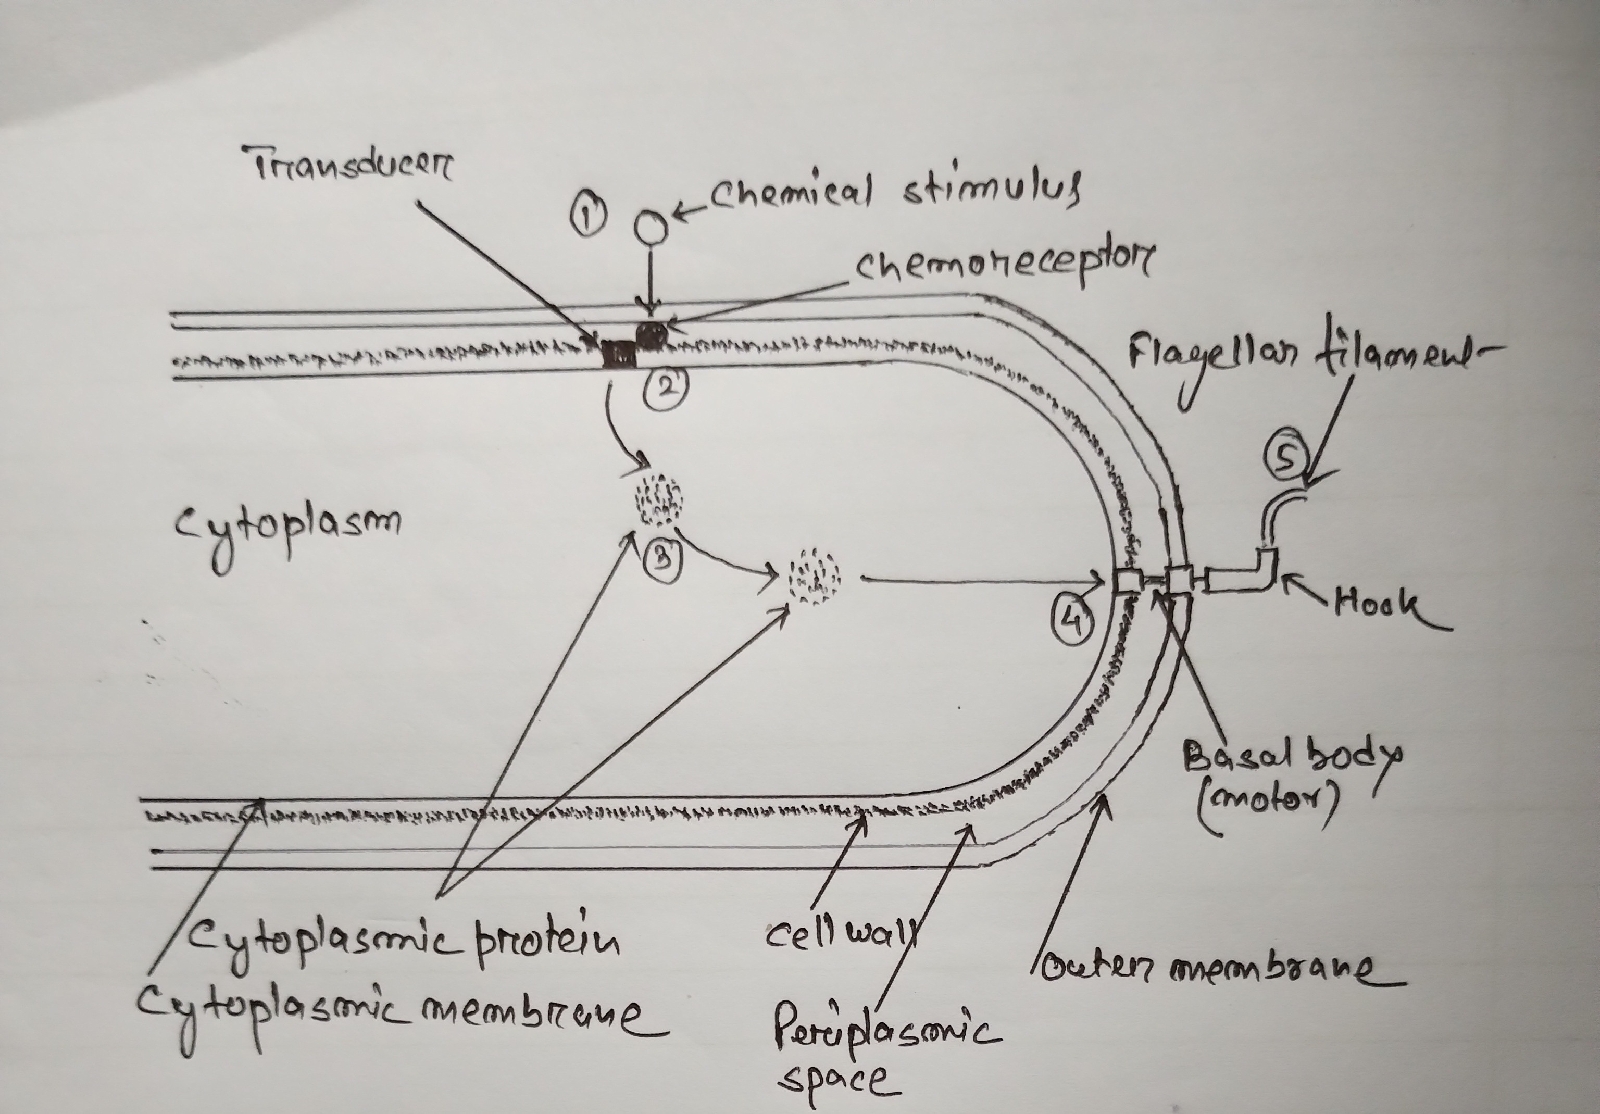 Transducer
① Chemical stimulus
Chemoreceptor
Flagellar filament
②
⑤
Cytoplasm
③
④
Hook
Basal body
(motor)
Cytoplasmic protein
cell wall
Outer membrane
Cytoplasmic membrane
Periplasmic
space